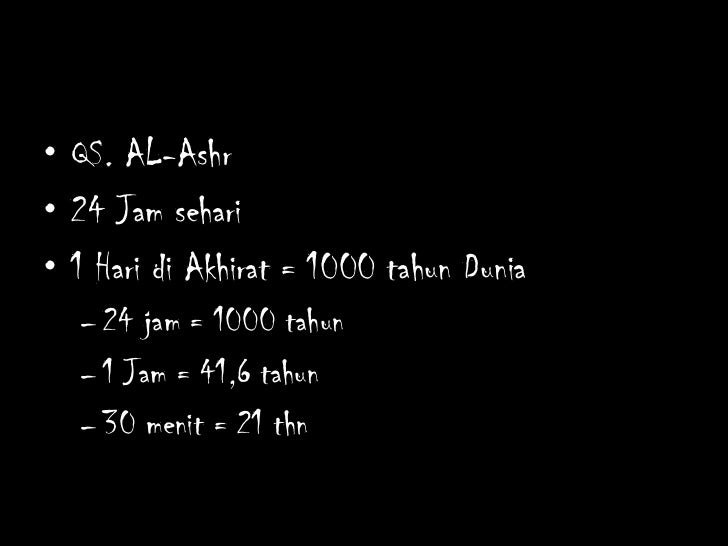 • QS. AL-Ashr
• 24 Jam sehari
• 1 Hari di Akhirat = 1000 tahun Dunia
– 24 jam = 1000 tahun
– 1 Jam = 41,6 tahun
– 30 menit = 21 thn